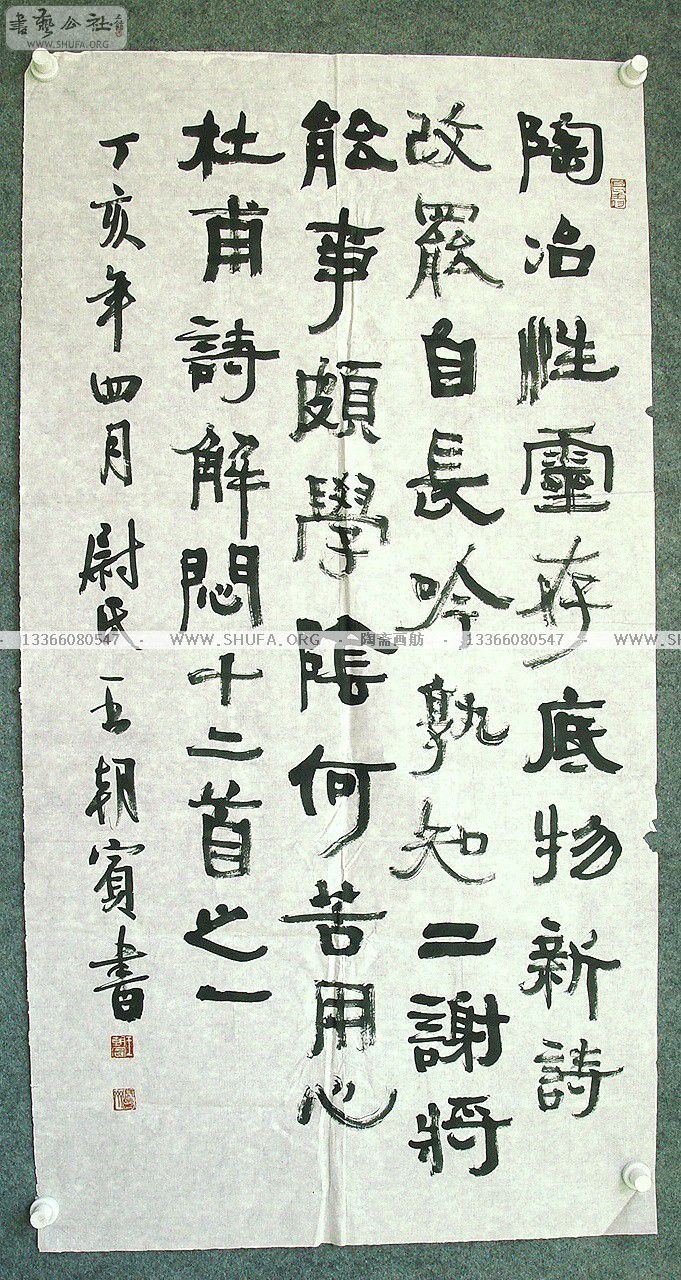 書藝公社
WWW.SHUFA.ORG
陶冶性靈存底物新詩
改罷自長吟孰知二謝將
能事頗學陰何苦用心
杜甫詩解悶十二首之一
丁亥年四月尉氏王朝賓書
- 13366080547 - WWW.SHUFA.ORG - 陶斋画舫 - 13366080547 - WWW.SHUFA.ORG